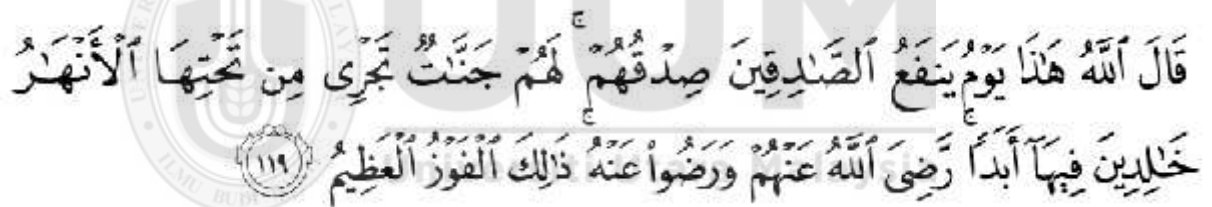 قَالَ ٱللَّهُ هَٰذَا يَوْمُ يَنفَعُ ٱلصَّٰدِقِينَ صِدْقُهُمْ ۚ لَهُمْ جَنَّٰتٌ تَجْرِى مِن تَحْتِهَا ٱلْأَنْهَٰرُ
خَٰلِدِينَ فِيهَآ أَبَدًا ۚ رَّضِىَ ٱللَّهُ عَنْهُمْ وَرَضُوا۟ عَنْهُ ۚ ذَٰلِكَ ٱلْفَوْزُ ٱلْعَظِيمُ ﴿١١٩﴾
UUM
Universiti Utara Malaysia